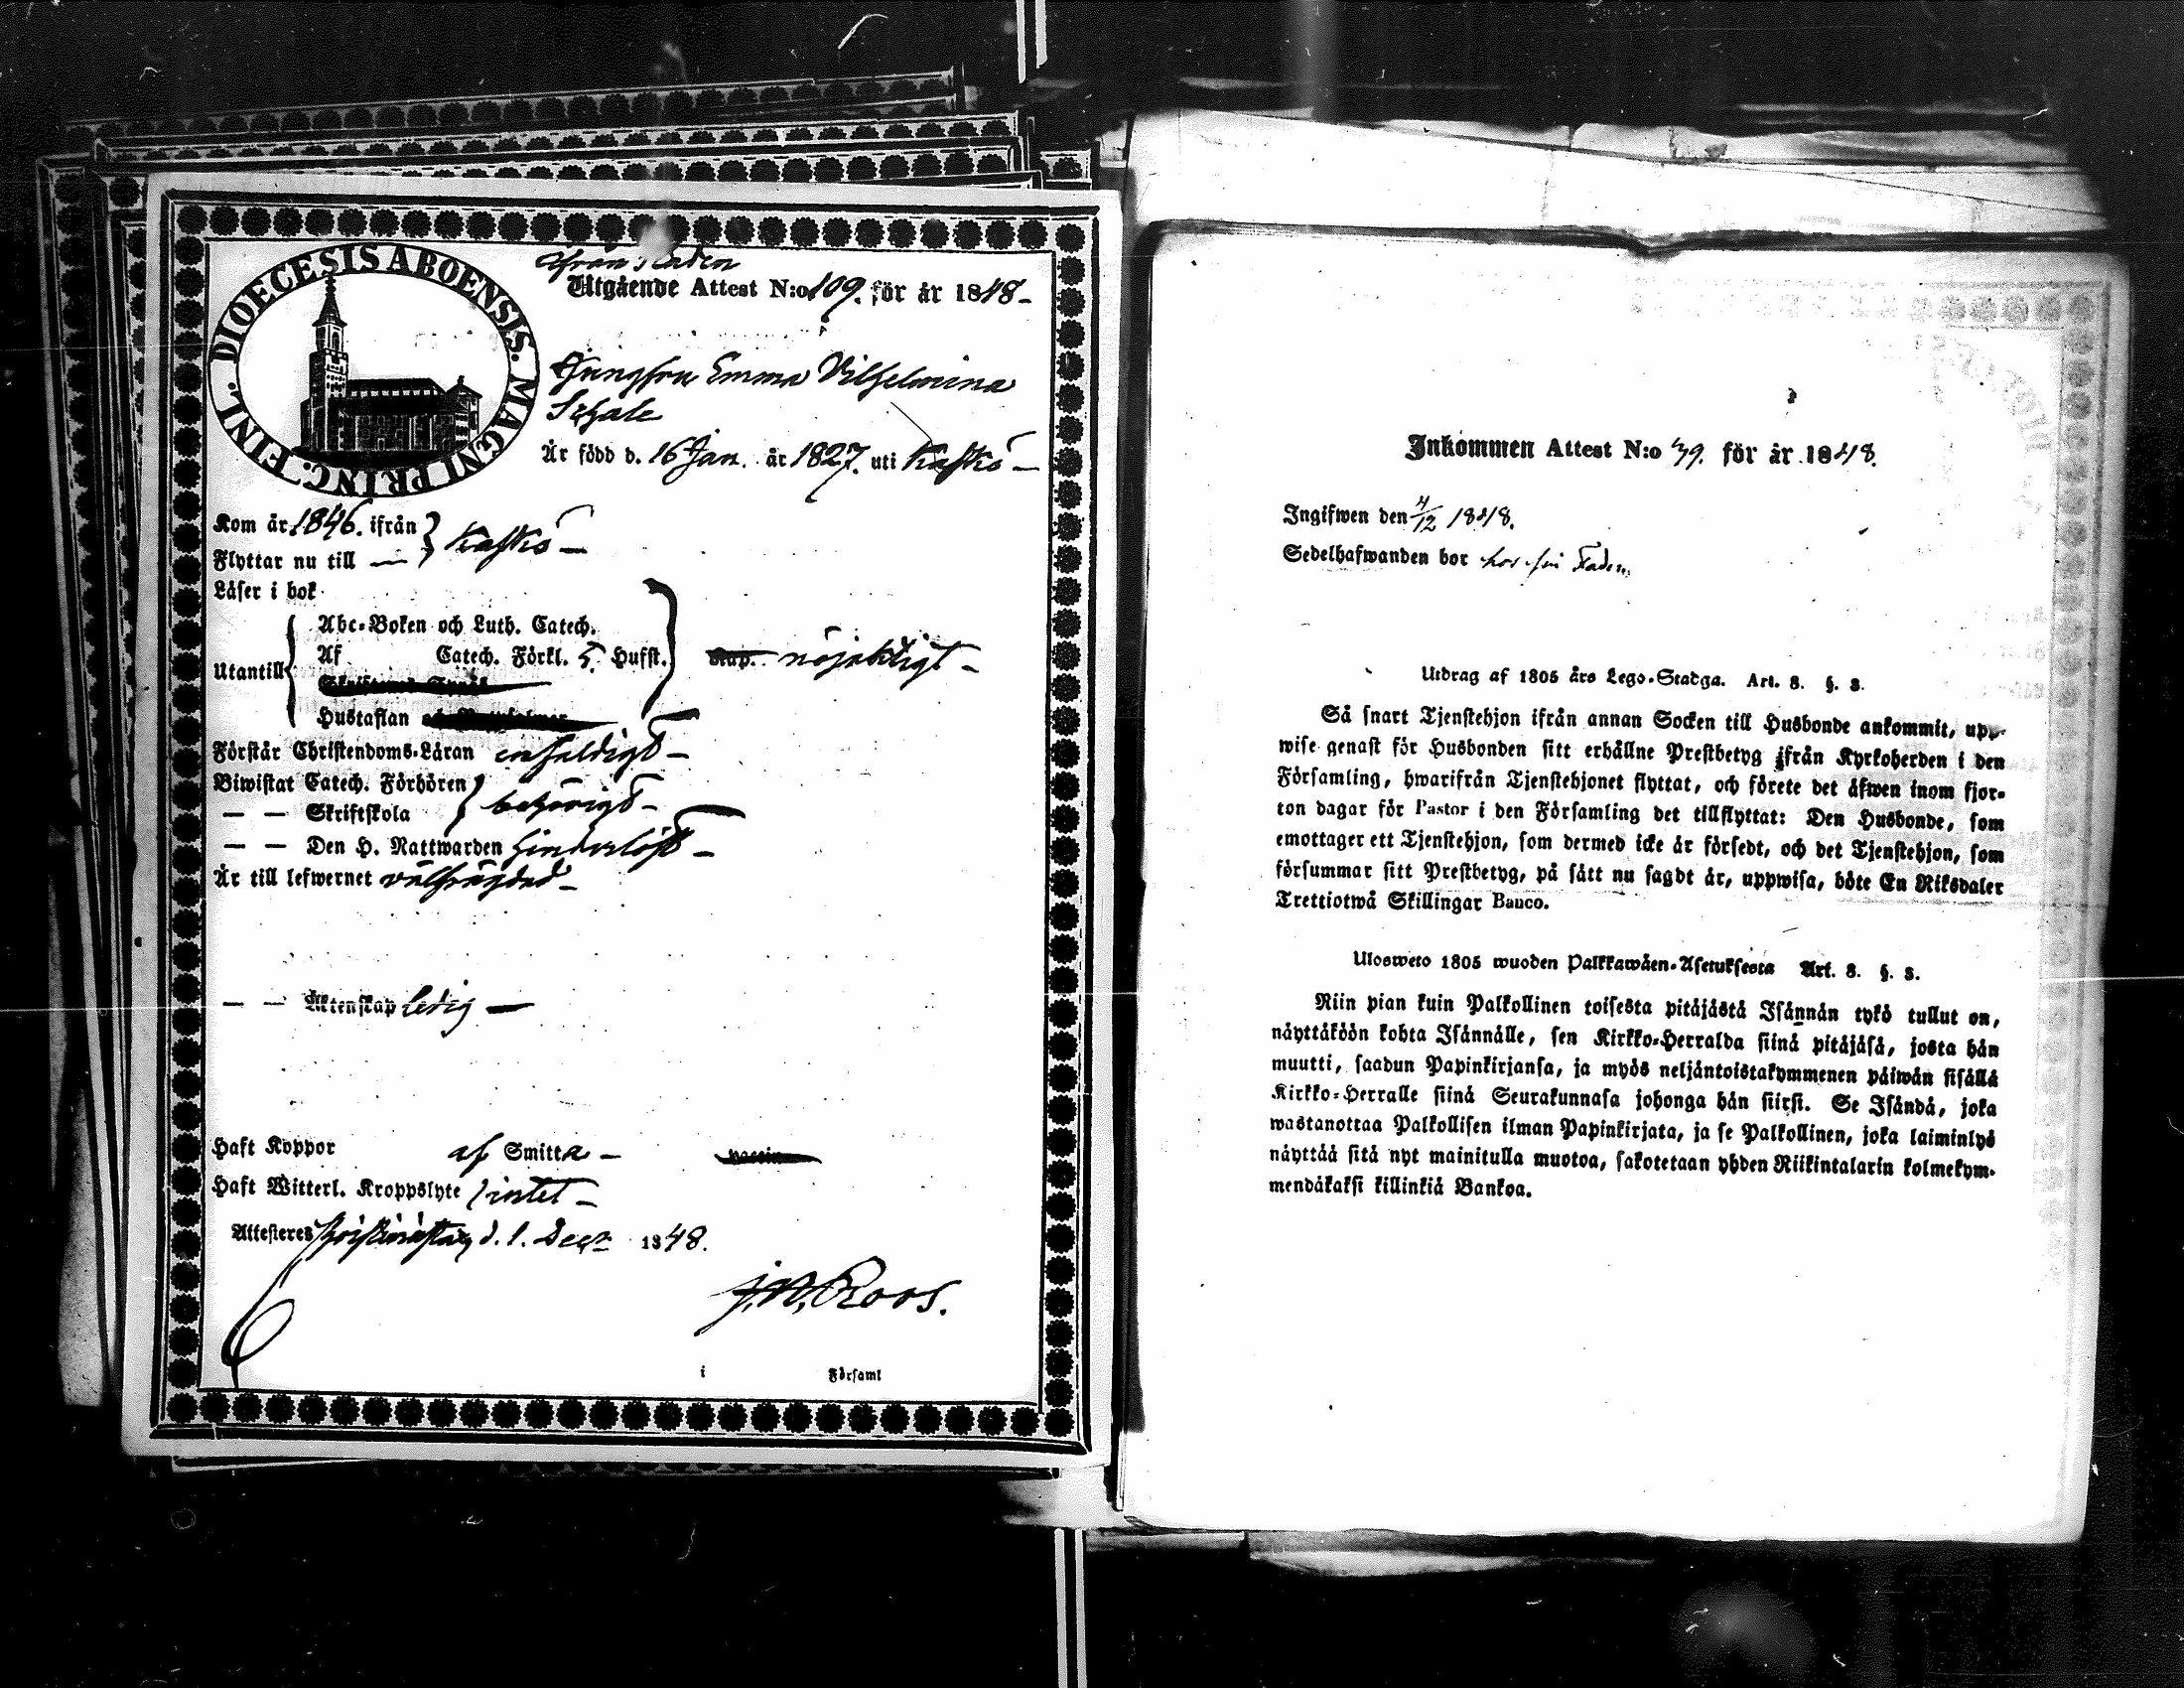 DIOECESIS ABOENSIS. MAGNI PRINC. FINL.
ifrån Staden
Utgående Attest N:o 109. för år 1848-
Jungfru Emma Vilhelmina
Är född d. 16 Jan. år 1827. uti Kaskö -
Kom år 1846. ifrån } Kaskö -
Flyttar nu till —
Läser i bok
Utantill
Abc-Boken och Luth. Catech.
Af Catech. Förkl. 5. Husst.
Kap. nöjaktigt -
Hustaflan
Förstår Christendoms-Läran enfaldigt -
Biwistat Catech. Förhören } behörigt -
— — Skriftskola
— — Den H. Nattwarden hinderlöst -
Är till lefwernet välfrägdad -
— — Äktenskap ledig —
Haft Koppor af Smitta -
Haft Witterl. Kroppslyte intet -
Attesteras d. 1. Decr 1848.
J. N. Roos.
i Församl
Inkommen Attest N:o 39. för år 1848.
Ingifwen den 4/12 1848.
Sedelhafwanden bor hos sin Fader
Utdrag af 1805 års Lego-Stadga. Art. 8. §. 3.
Så snart Tjenstehjon ifrån annan Socken till Husbonde ankommit, upp-
wise genast för Husbonden sitt erhållne Prestbetyg ifrån Kyrkoherden i den
Församling, hwarifrån Tjenstehjonet flyttat, och förete det äfwen inom fjor-
ton dagar för Pastor i den Församling det tillflyttat: Den Husbonde, som
emottager ett Tjenstehjon, som dermed icke är försedt, och det Tjenstehjon, som
försummar sitt Prestbetyg, på sätt nu sagdt är, uppwisa, böte En Riksdaler
Trettiotwå Skillingar Banco.
Ulosweto 1805 wuoden Palkkawäen-Asetuksesta Art. 8. §. 3.
Niin pian kuin Palkollinen toisesta pitäjästä Isännän tykö tullut on,
näyttäköön kohta Isännälle, sen Kirkko-Herralda siinä pitäjäsä, josta hän
muutti, saadun Papinkirjansa, ja myös neljäntoistakymmenen päiwän sisällä
Kirkko-Herralle siinä Seurakunnasa johonga hän siirsi. Se Isändä, joka
wastanottaa Palkollisen ilman Papinkirjata, ja se Palkollinen, joka laiminlyö
näyttää sitä nyt mainitulla muotoa, sakotetaan yhden Riikintalarin kolmekym-
mendäkaksi killinkiä Bankoa.